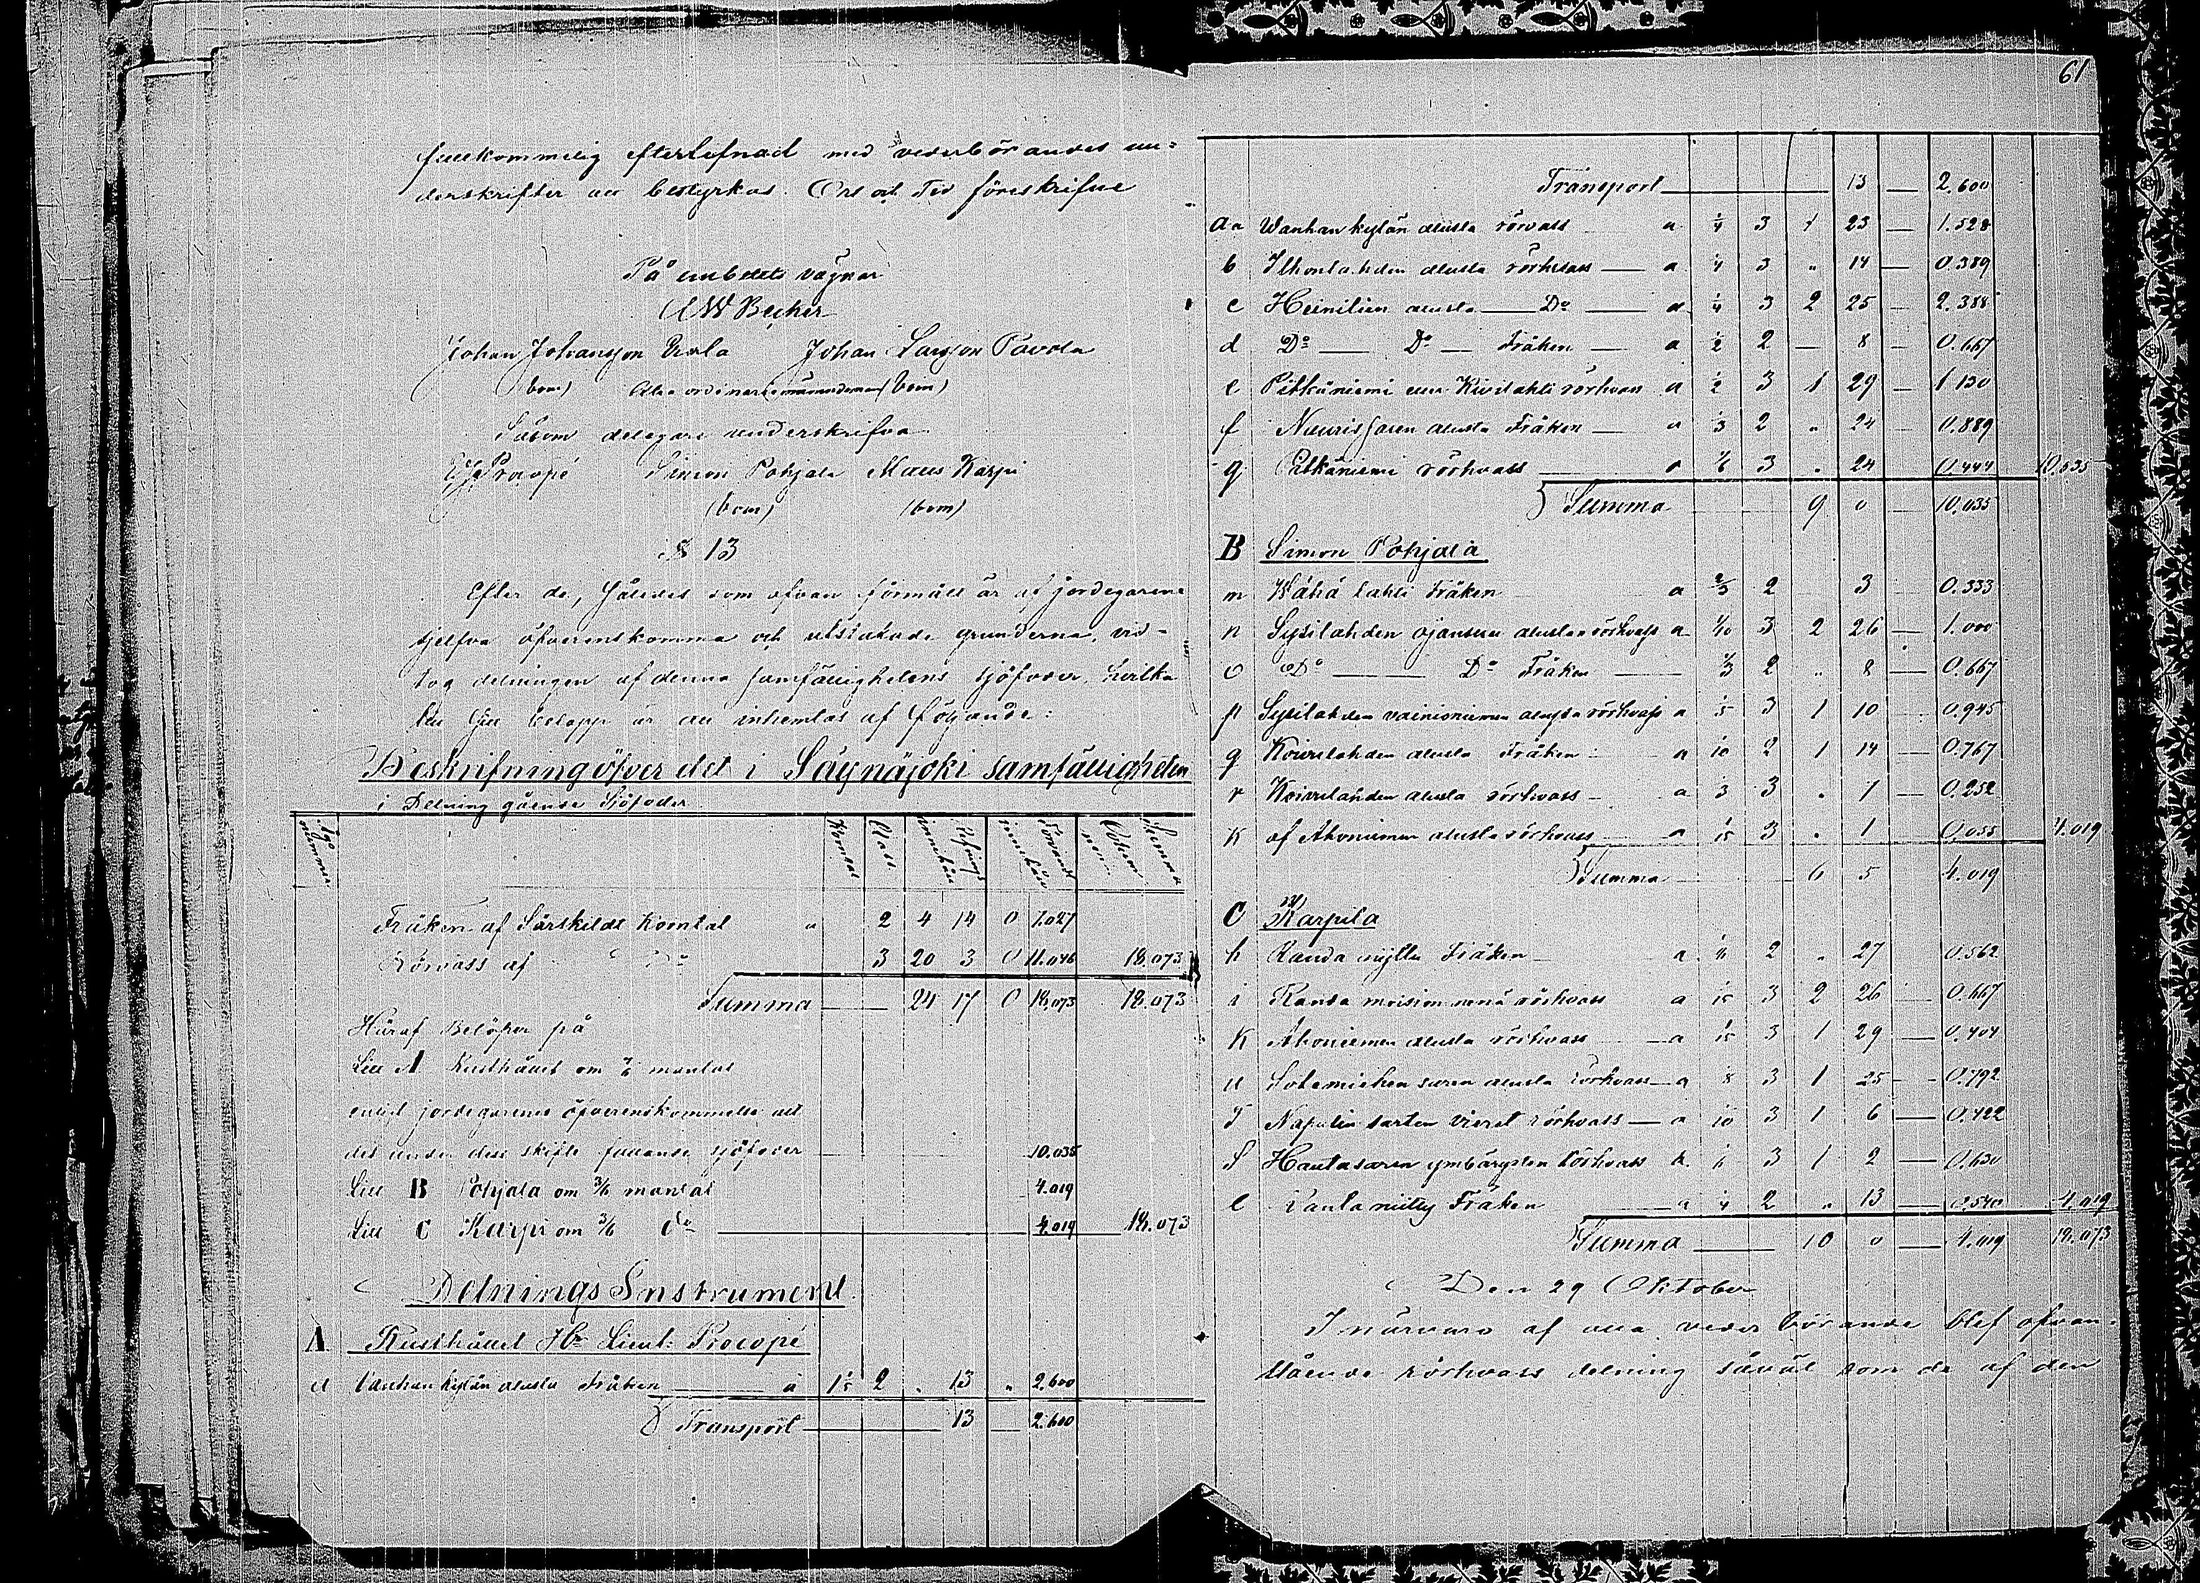 fullkommelig efterlefnad med vederbörandes un=
derskrifter att bestyrkas. Ort och Tid föreskrifne
På embetets vägnar
CW Becker
Johan Johansson Johan Larsson Pavola
(bom) (bom)
Såsom delegare underskrifva
Procopé Simon Pohjala Maus Karpi
(bom) (bom)
§ 13
Efter de, således som ofvan förmält är af jordegarene
sjelfva öfverenskomna och utstakade grunderna, vid=
tog delningen af denna samfällighetens sjöfoder, hvilka
till sitt belopp är att inhemtas af följande:
Beskrifning öfver det i Säynäjoki samfälligheten
i Delning gående Sjöfoder
Ägo nummer Korntal Class innehåll Refnings innehåll Förvandl Summa
Fräken af Särskildt Korntal a 2 4 14 0 7.027
Rörvass af Do 3 20 3 0 11.046 18.073
Summa 24 17 0 18.073 18.073
Häraf Belöper på
Litt A Rusthållet om mantal
enligt jordegarenes öfverenskommelse att
det under dess skifte fallande sjöfoder 10.035
Litt B Pohjala om 3/6 mantal 4.019
Litt C Karpi om 3/6 do 4.019 18.073
Delnings Instrument
A Rusthållet Hr Lieut: Procopé
Wanhan kylän alusta Fräken a 1/5 2 " 13 " 2.600
Transport 13 2.600
61
Transport 13 — 2.600
Aa Wanhan kylän alusta rörvass a 1/4 3 1 23 — 1.528
b alusta rörhvass a 1/4 3 " 14 — 0.389
c Heinilän alusta Do a 1/4 3 2 25 — 2.388
d Do Do Fräken a 1/2 2 — 8 — 0.667
e Pitkäniemi rörhvass a 1/2 3 1 29 — 1.130
f alusta Fräken a 1/3 2 " 24 — 0.889
g Pitkäniemi rörhvass a 1/6 3 " 24 0.444 10.035
Summa 9 0 10.035
B Simon Pohjala
m Wähä lahti Fräken a 2/3 2 3 — 0.333
n Sysilahden alusta rörhvass a 1/10 3 2 26 — 1.000
o Do Do Fräken 1/3 2 " 8 — 0.667
p Sysilahden alusta rörhvass a 1/5 3 1 10 — 0.945
q Koivulahden alusta Fräken a 1/10 2 1 14 — 0.767
r Koivulahden alusta rörhvass a 1/3 3 " 1 — 0.252
K af Ahoniemen alusta rörhvass a 1/15 3 " 1 0.055 4.019
Summa 6 5 4.019
C Karpila
h Randa niytty Fräken a 2 " 27 0.562
i Randa rörhvass a 1/15 3 2 26 — 0.667
K Ahoniemen alusta rörhvass a 1/15 3 1 29 — 0.404
u saren alusta rörhvass a 1/8 3 1 25 — 0.792
T rörhvass a 1/10 3 1 6 — 0.422
S Hautasaren ymbärysten rörhvass 3 1 2 — 0.630
l niitty Fräken a 1/4 2 " 13 — 0.540 4.019
Summa 10 0 — 4.019 18.073
Den 29 Oktober
I närvaro af alla veder börande blef ofvan=
stående rörhvass delning såväl som de af den